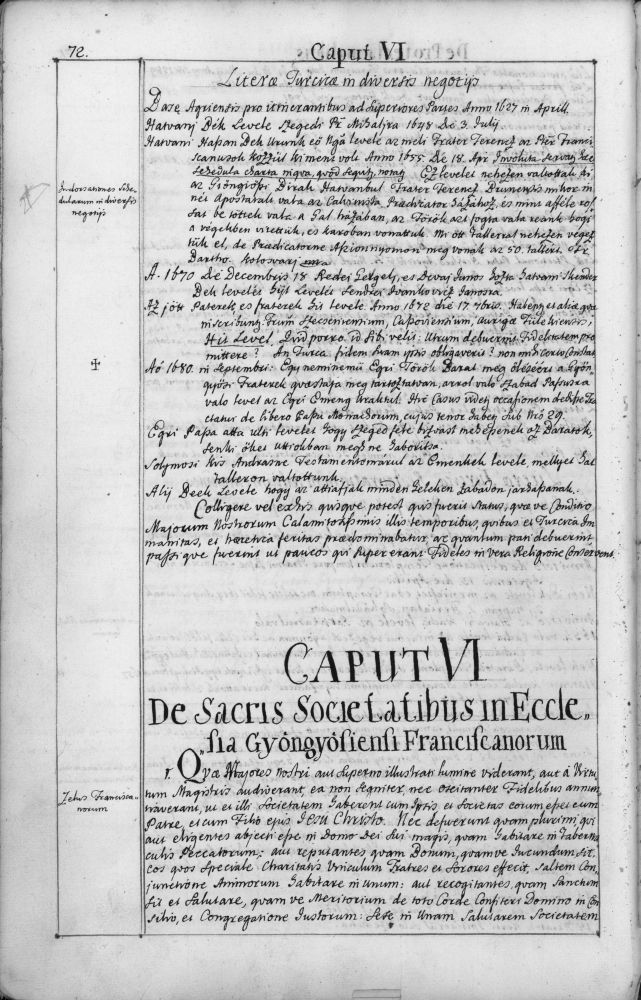 72.
Caput VI
Literæ Turcicæ in diversis negotiis
Basæ Agriensis pro itinerantibus ad Superiores Partes Anno 1627 in Aprili
Hatvany Dék Levele Szegedi Pr Mihályra 1648 Die 3. Julij
Hatvani Hassan Dek Urunk eö Nga levele az meli Frater Ferencz az Pter Franci
scanusok közzül ki ment volt Anno 1655. die 18. Apr. Involuta
Schedula charta nigra, quod sequitur, nota. Ez levelet nehezen valtottak ki
az Giöngiösi Birak Hatvanbul Frater Ferencz
nei Apostatalt vala az Calvinista Prædicator házához, és mint afféle
sat be töttek vala a Gal házában, az Török azt fogta vala reánk hogi
a végekben vitettük, es karoban vonattuk Mi ött Tallerral nehezen végez
tük el, de Prædicatorne Aszionnyomon meg vonák az 50. tallért. Fr.
Bartho. Kolosvari
A. 1670 Die Decembris 18 Redei Gergely, es Devaj Janos hozta hatvani
Dek levelét
Az jött Paterek, es fraterek Hit levele. Anno 1672 die 17 7bris.
inscribunt. Frum Szecseniensium, Cassoviensium, aurigæ Fülekiensis,
Hit Level. Quid porro id sibi velit: Utrum debuerint Fidelitatem pro
mittere? An Turca fidem suam ipsis obligaverit? non
Aõ 1680. in Septembri: Egy neminemü Egri Török Barát meg öleséért a Gyön
gyösi Fraterek quartélya meg tartóztatván, arrol való szabad Passusra
valo level az Egri Emeng Hic Casus videtur occasionem dedisse Tra
ctatui de libero Passu Monachorum, cujus tenor habetur sub Nrõ 29.
Egri Passa atta ulti levelet hogy Szeged felé az Baratok,
senki öket uttiokban meg ne haboritsa.
Solymosi Kis Andrasne Testamentomárul az Emenhek levele, mellyet hat
talleron valtottunk.
Alij Deek Levele hogy az attiafiak minden heleken szabadon jarhassanak.
Colligere vel ex his quisque potest quis fuerit Status, quæ ve Conditio
Majorum Nostrorum Calamitosissimis illis temporibus, quibus et Turcica Im
manitas, et hæretica feritas prædominabatur, ac quantum pati debuerint,
passi que fuerint ut paucos qui supererant Fideles in vera Religione Conservent.
Indorsationes Sche
dularum in diversis
negotijs
CAPUT VI
De Sacris Societatibus in Eccle„
„sia Gyöngyösiensi Franciscanorum
Zelus Francisca„
norum
1. Quæ Majores nostri aut superno illustrati lumine viderant, aut á Virtu
tum Magistris audiverant, ea non segniter, nec oscitanter Fidelibus annun
tiaverant, ut et illi Societatem haberent cum Ipsis et Societas eorum esset cum
Patre, et cum Filio ejus JESU Christo. Nec defuerunt quam plurimi qui
aut eligentes abjecti esse in Domo Dei sui magis, quam habitare in taberna
culis Peccatorum: aut reputantes quam Bonum, quamve Jucundum sit,
eos quos speciale Charitatis Vinculum Fratres et Sorores effecit, saltem Con
junctione Animorum habitare in Unum: aut recogitantes, quam Sanctum
sit et Salutare, quam ve Meritorium de toto Corde Confiteri Domino in Con
silio, et Congregatione Justorum: sese in Unam Salutarem Societatem